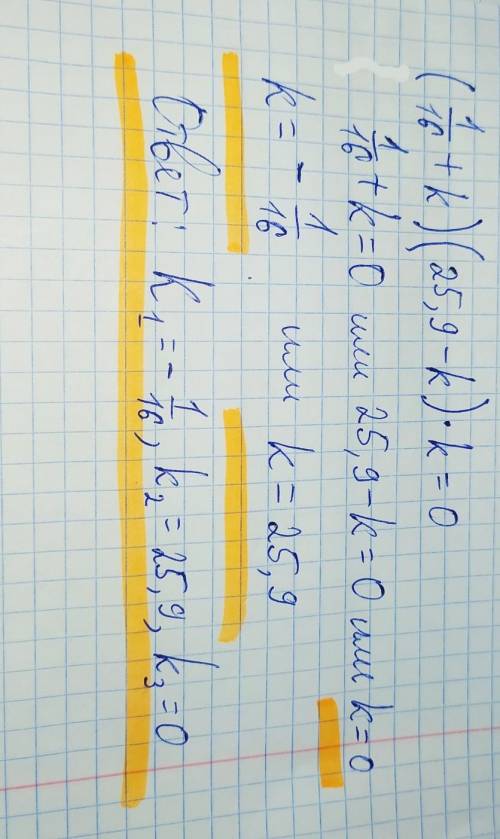 (1/16 + k)(25,9 - k) · k = 0
1/16 + k = 0 или 25,9 - k = 0 или k = 0
k = - 1/16 или k = 25,9
Ответ: k₁ = - 1/16, k₂ = 25,9, k₃ = 0